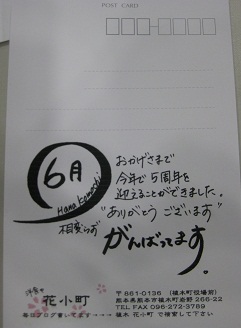 POST CARD
6月
Hana Komachi
おかげさまで
今年で5周年を
迎えることができました。
"ありがとう ございます"
相変らず
がんばってます。
洋食や
花小町
〒861-0136 (植木町役場前)
熊本県熊本市植木町岩野 266-22
TEL FAX 096-272-3769
毎日ブログ書いてます→→→ 植木 花小町 で検索して下さい